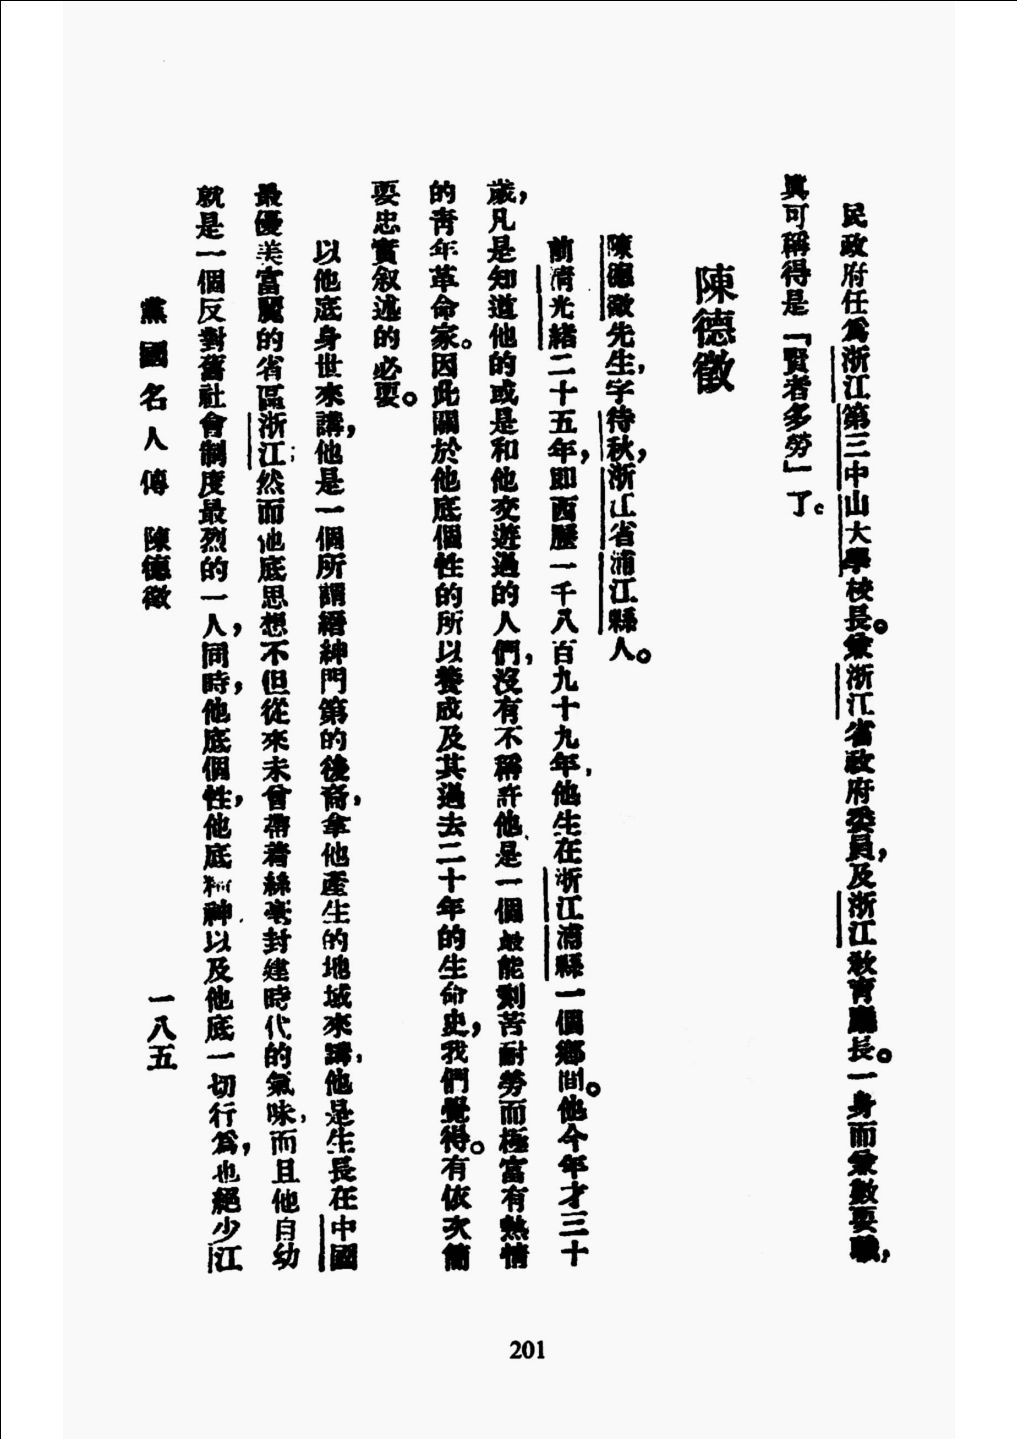 民政府任爲浙江第三中山大學校長。兼浙江省政府委員，及浙江教育廳長。一身而兼數要職，
眞可稱得是「賢者多勞」了。
陳德徵
陳德徵先生，字待秋，浙江省浦江縣人。
前清光緒二十五年，即西歷一千八百九十九年，他生在浙江浦縣一個鄉間。他今年才三十
歲，凡是知道他的或是和他交遊過的人們，沒有不稱許他、是一個最能刻苦耐勞而極富有熱情
的青年革命家。因此關於他底個性的所以養成及其過去二十年的生命史，我們覺得。有依次簡
要忠實叙述的必要。
以他底身世來講，他是一個所謂縉紳門第的後裔，拿他產生的地域來講，他是生長在中國
最優美富麗的省區浙江；然而他底思想不但從來未曾帶着絲毫封建時代的氣味，而且他自幼
就是一個反對舊社會制度最烈的一人，同時，他底個性，他底精神．以及他底一切行爲，也絕少江
黨國名人傳 陳德徵
一八五
201